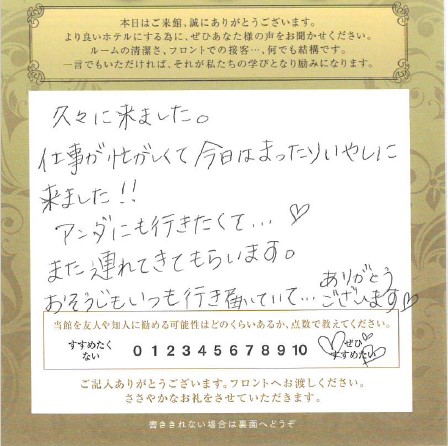 本日はご来館、誠にありがとうございます。
より良いホテルにする為に、ぜひあなた様の声をお聞かせください。
ルームの清潔さ、フロントでの接客…、何でも結構です。
一言でもいただければ、それが私たちの学びとなり励みになります。
久々に来ました。
仕事が忙がしくて今日はまったりいやしに
来ました!!
アンダにも行きたくて…♡
また連れてきてもらいます。
おそうじもいつも行き届いていて…ありがとう
ございます♡
当館を友人や知人に勧める可能性はどのくらいあるか、点数で教えてください。
すすめたく
ない
0 1 2 3 4 5 6 7 8 9 10
ぜひ
すすめたい
ご記入ありがとうございます。フロントへお渡しください。
ささやかなお礼をさせていただきます。
書ききれない場合は裏面へどうぞ